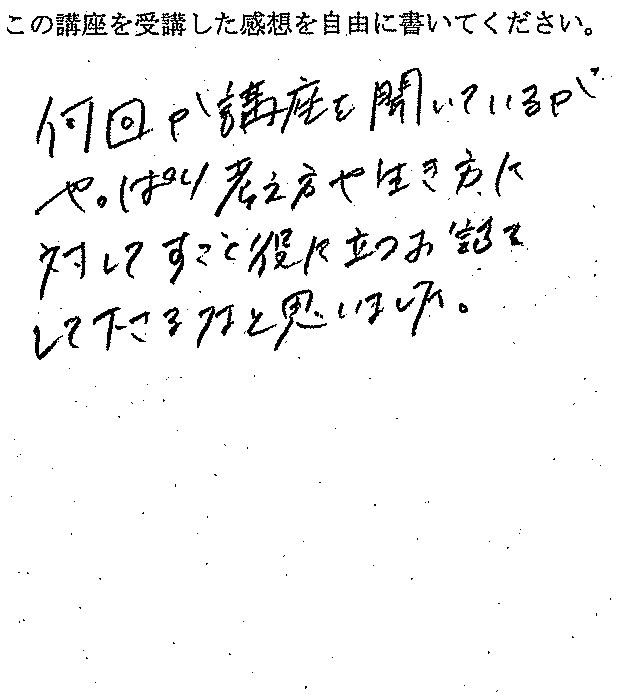 この講座を受講した感想を自由に書いてください。
何回か講座を聞いているが
やっぱり考え方や生き方に
対してすごく役に立つお話を
して下さるなと思いました。